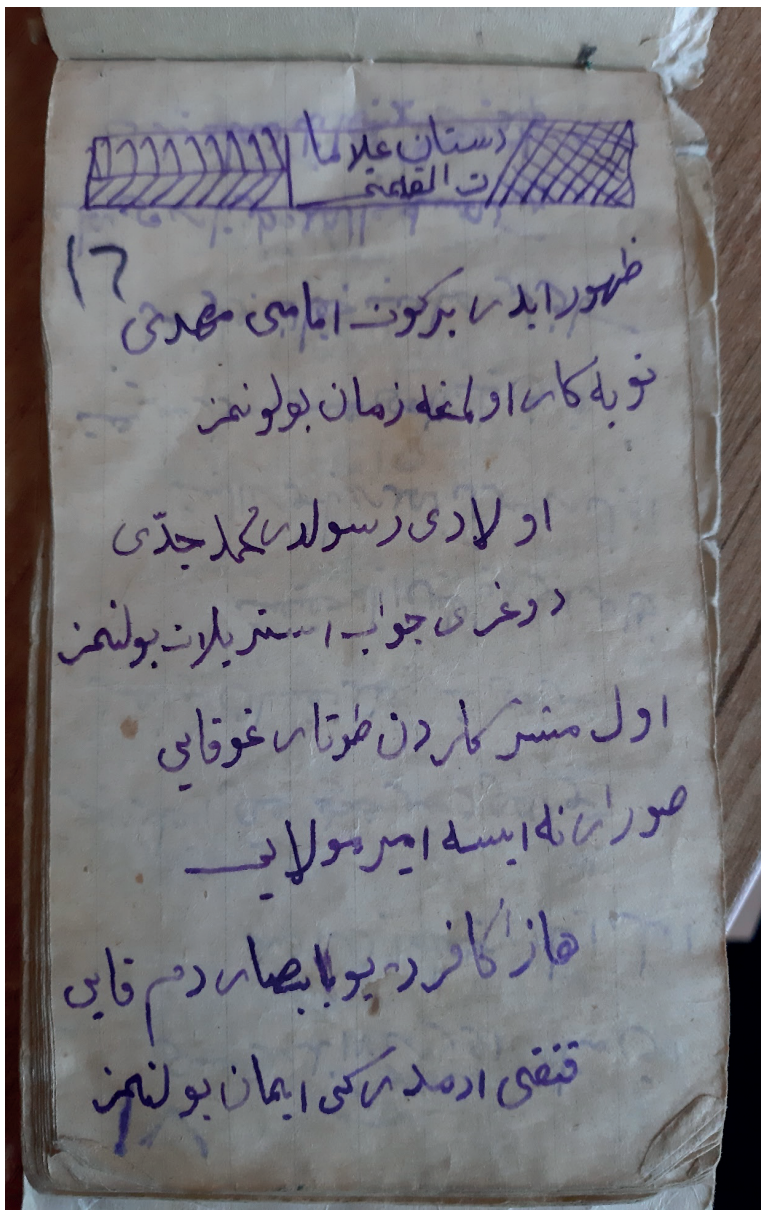 دستان علاما
ت القلمة
١٦
ظهور ايدر بر كون امامى مهدى
توبه كار اولمغه زمان بولونمز
اولادى رسولدر محمد جدّى
دوغرى جواب استريلان بولنمز
اول مشتركلردن طوتار غوقايى
صورار نه ايسه امير مولايى
هاز كافر ديو بابصار دم قايى
قنقى ادمدركى ايمان بولنمز